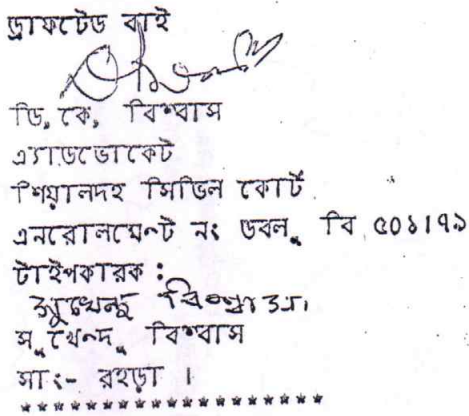 ড্রাফটেড বাই
ডি, কে, বিশ্বাস
এ্যাডভোকেট
শিয়ালদহ সিভিল কোর্ট
এনরোলমেন্ট নং ডবলু বি ৫০১১৭৯
টাইপকারক :
সুখেন্দু বিশ্বাস
সুখেন্দু বিশ্বাস
সাং- রহড়া ।
********************